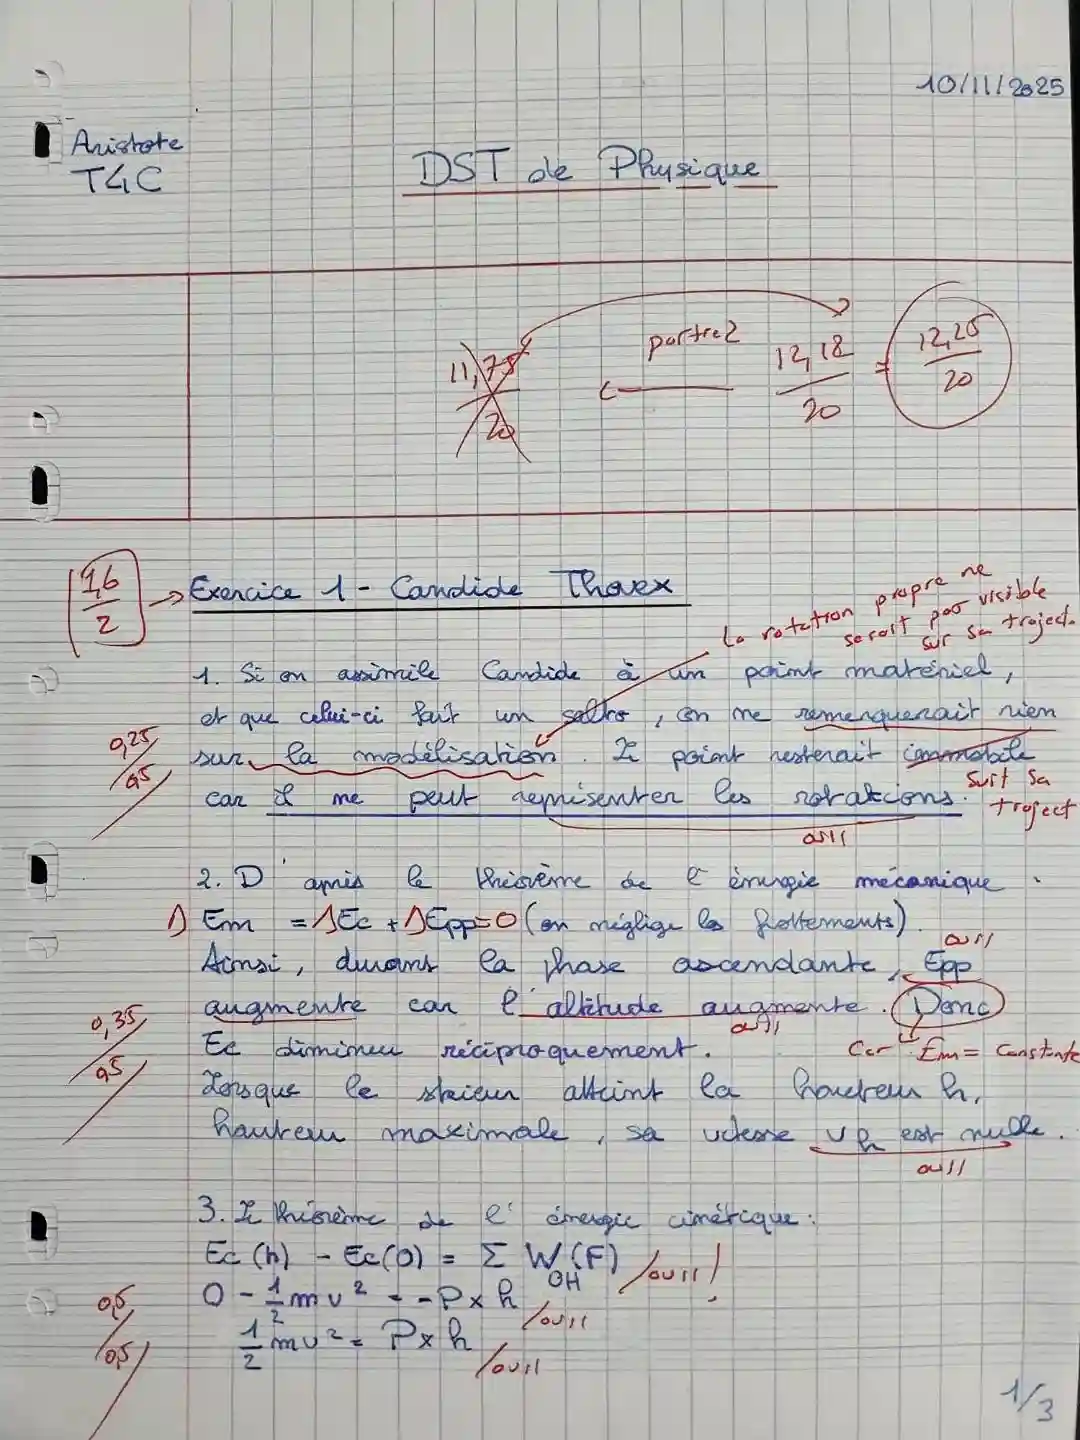 10/11/2025
Aristote
T4C
DST de Physique
11,75
20
partie 2
12,18
20
=
12,25
20
1,6
2
Exercice 1 - Candide Thovex
La rotation propre ne
serait pas visible
sur sa traject.
1. Si on assimile Candide à un point matériel,
et que celui-ci fait un salto, on ne remerquerait rien
0,25
0,5
sur la modélisation. Le point resterait immobile
suit sa
traject
car il ne peut représenter les rotations.
oui!
2. D'après le théorème de l'énergie mécanique
Δ Em = ΔEc + ΔEpp = 0 (on néglige les frottements).
oui!
Ainsi, durant la phase ascendante, Epp
augmente car l'altitude augmente. Donc
oui!
0,35
0,5
Ec diminue réciproquement.
Car Em = constante
Lorsque le skieur atteint la hauteur h,
hauteur maximale, sa vitesse vh est nulle.
oui!
3. Le théorème de l'énergie cinétique:
Ec (h) - Ec(0) = Σ W (F) /oui! !
OH
0,5
0,5
0 - 1/2 m v² = -P x h /oui!
1/2 m v² = P x h /oui!
1/3